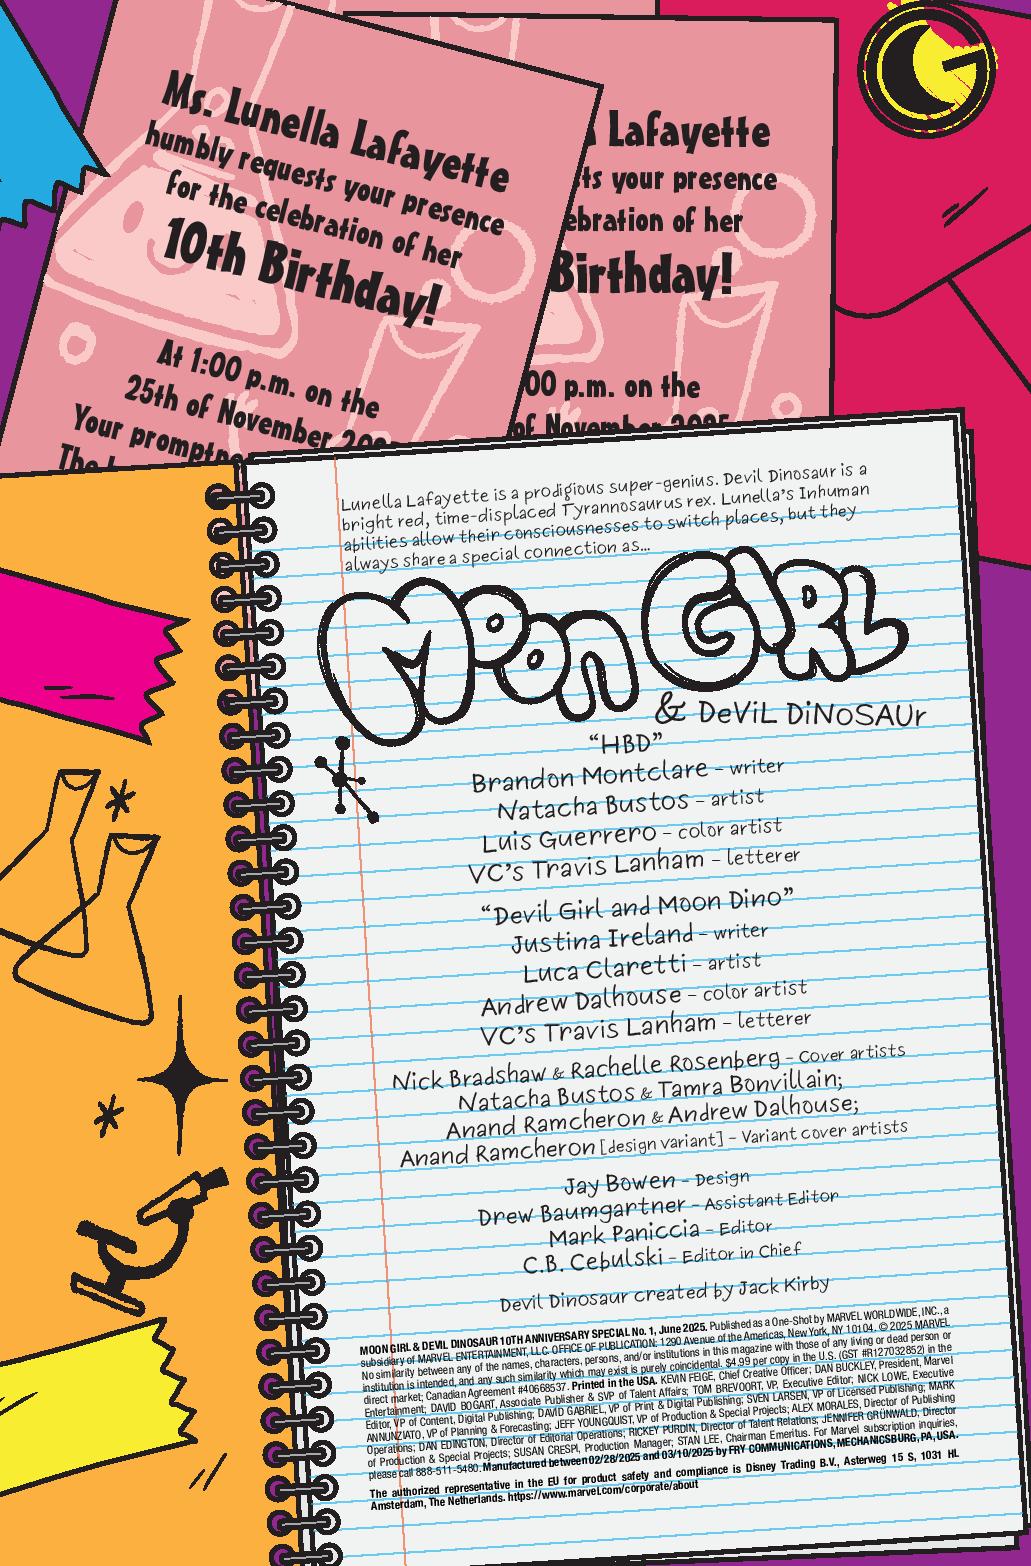 Ms. Lunella Lafayette
humbly requests your presence
for the celebration of her
10th Birthday!
At 1:00 p.m. on the
25th of November
Your
The
Lafayette
presence
of her
Birthday!
p.m. on the
of November 2025
Lunella Lafayette is a prodigious super-genius. Devil Dinosaur is a
bright red, time-displaced Tyrannosaurus rex. Lunella's Inhuman
abilities allow their consciousnesses to switch places, but they
always share a special connection as...
Moon Girl
& DeViL DiNoSAUr
“HBD”
Brandon Montclare – writer
Natacha Bustos – artist
Luis Guerrero – color artist
VC's Travis Lanham – letterer
“Devil Girl and Moon Dino”
Justina Ireland – writer
Luca Claretti – artist
Andrew Dalhouse – color artist
VC's Travis Lanham – letterer
Nick Bradshaw & Rachelle Rosenberg – Cover artists
Natacha Bustos & Tamra Bonvillain;
Anand Ramcheron & Andrew Dalhouse;
Anand Ramcheron [design variant] – Variant cover artists
Jay Bowen – Design
Drew Baumgartner – Assistant Editor
Mark Paniccia – Editor
C.B. Cebulski – Editor in Chief
Devil Dinosaur created by Jack Kirby
MOON GIRL & DEVIL DINOSAUR 10TH ANNIVERSARY SPECIAL No. 1, June 2025. Published as a One-Shot by MARVEL WORLDWIDE, INC., a
subsidiary of MARVEL ENTERTAINMENT, LLC. OFFICE OF PUBLICATION: 1290 Avenue of the Americas, New York, NY 10104. © 2025 MARVEL
No similarity between any of the names, characters, persons, and/or institutions in this magazine with those of any living or dead person or
institution is intended, and any such similarity which may exist is purely coincidental. $4.99 per copy in the U.S. (GST #R127032852) in the
direct market; Canadian Agreement #40668537. Printed in the USA. KEVIN FEIGE, Chief Creative Officer; DAN BUCKLEY, President, Marvel
Entertainment; DAVID BOGART, Associate Publisher & SVP of Talent Affairs; TOM BREVOORT, VP, Executive Editor; NICK LOWE, Executive
Editor, VP of Content, Digital Publishing; DAVID GABRIEL, VP of Print & Digital Publishing; SVEN LARSEN, VP of Licensed Publishing; MARK
ANNUNZIATO, VP of Planning & Forecasting; JEFF YOUNGQUIST, VP of Production & Special Projects; ALEX MORALES, Director of Publishing
Operations; DAN EDINGTON, Director of Editorial Operations; RICKEY PURDIN, Director of Talent Relations; JENNIFER GRÜNWALD, Director
of Production & Special Projects; SUSAN CRESPI, Production Manager; STAN LEE, Chairman Emeritus. For Marvel subscription inquiries,
please call 888-511-5480. Manufactured between 02/28/2025 and 03/10/2025 by FRY COMMUNICATIONS, MECHANICSBURG, PA, USA.
The authorized representative in the EU for product safety and compliance is Disney Trading B.V., Asterweg 15 S, 1031 HL
Amsterdam, The Netherlands. https://www.marvel.com/corporate/about